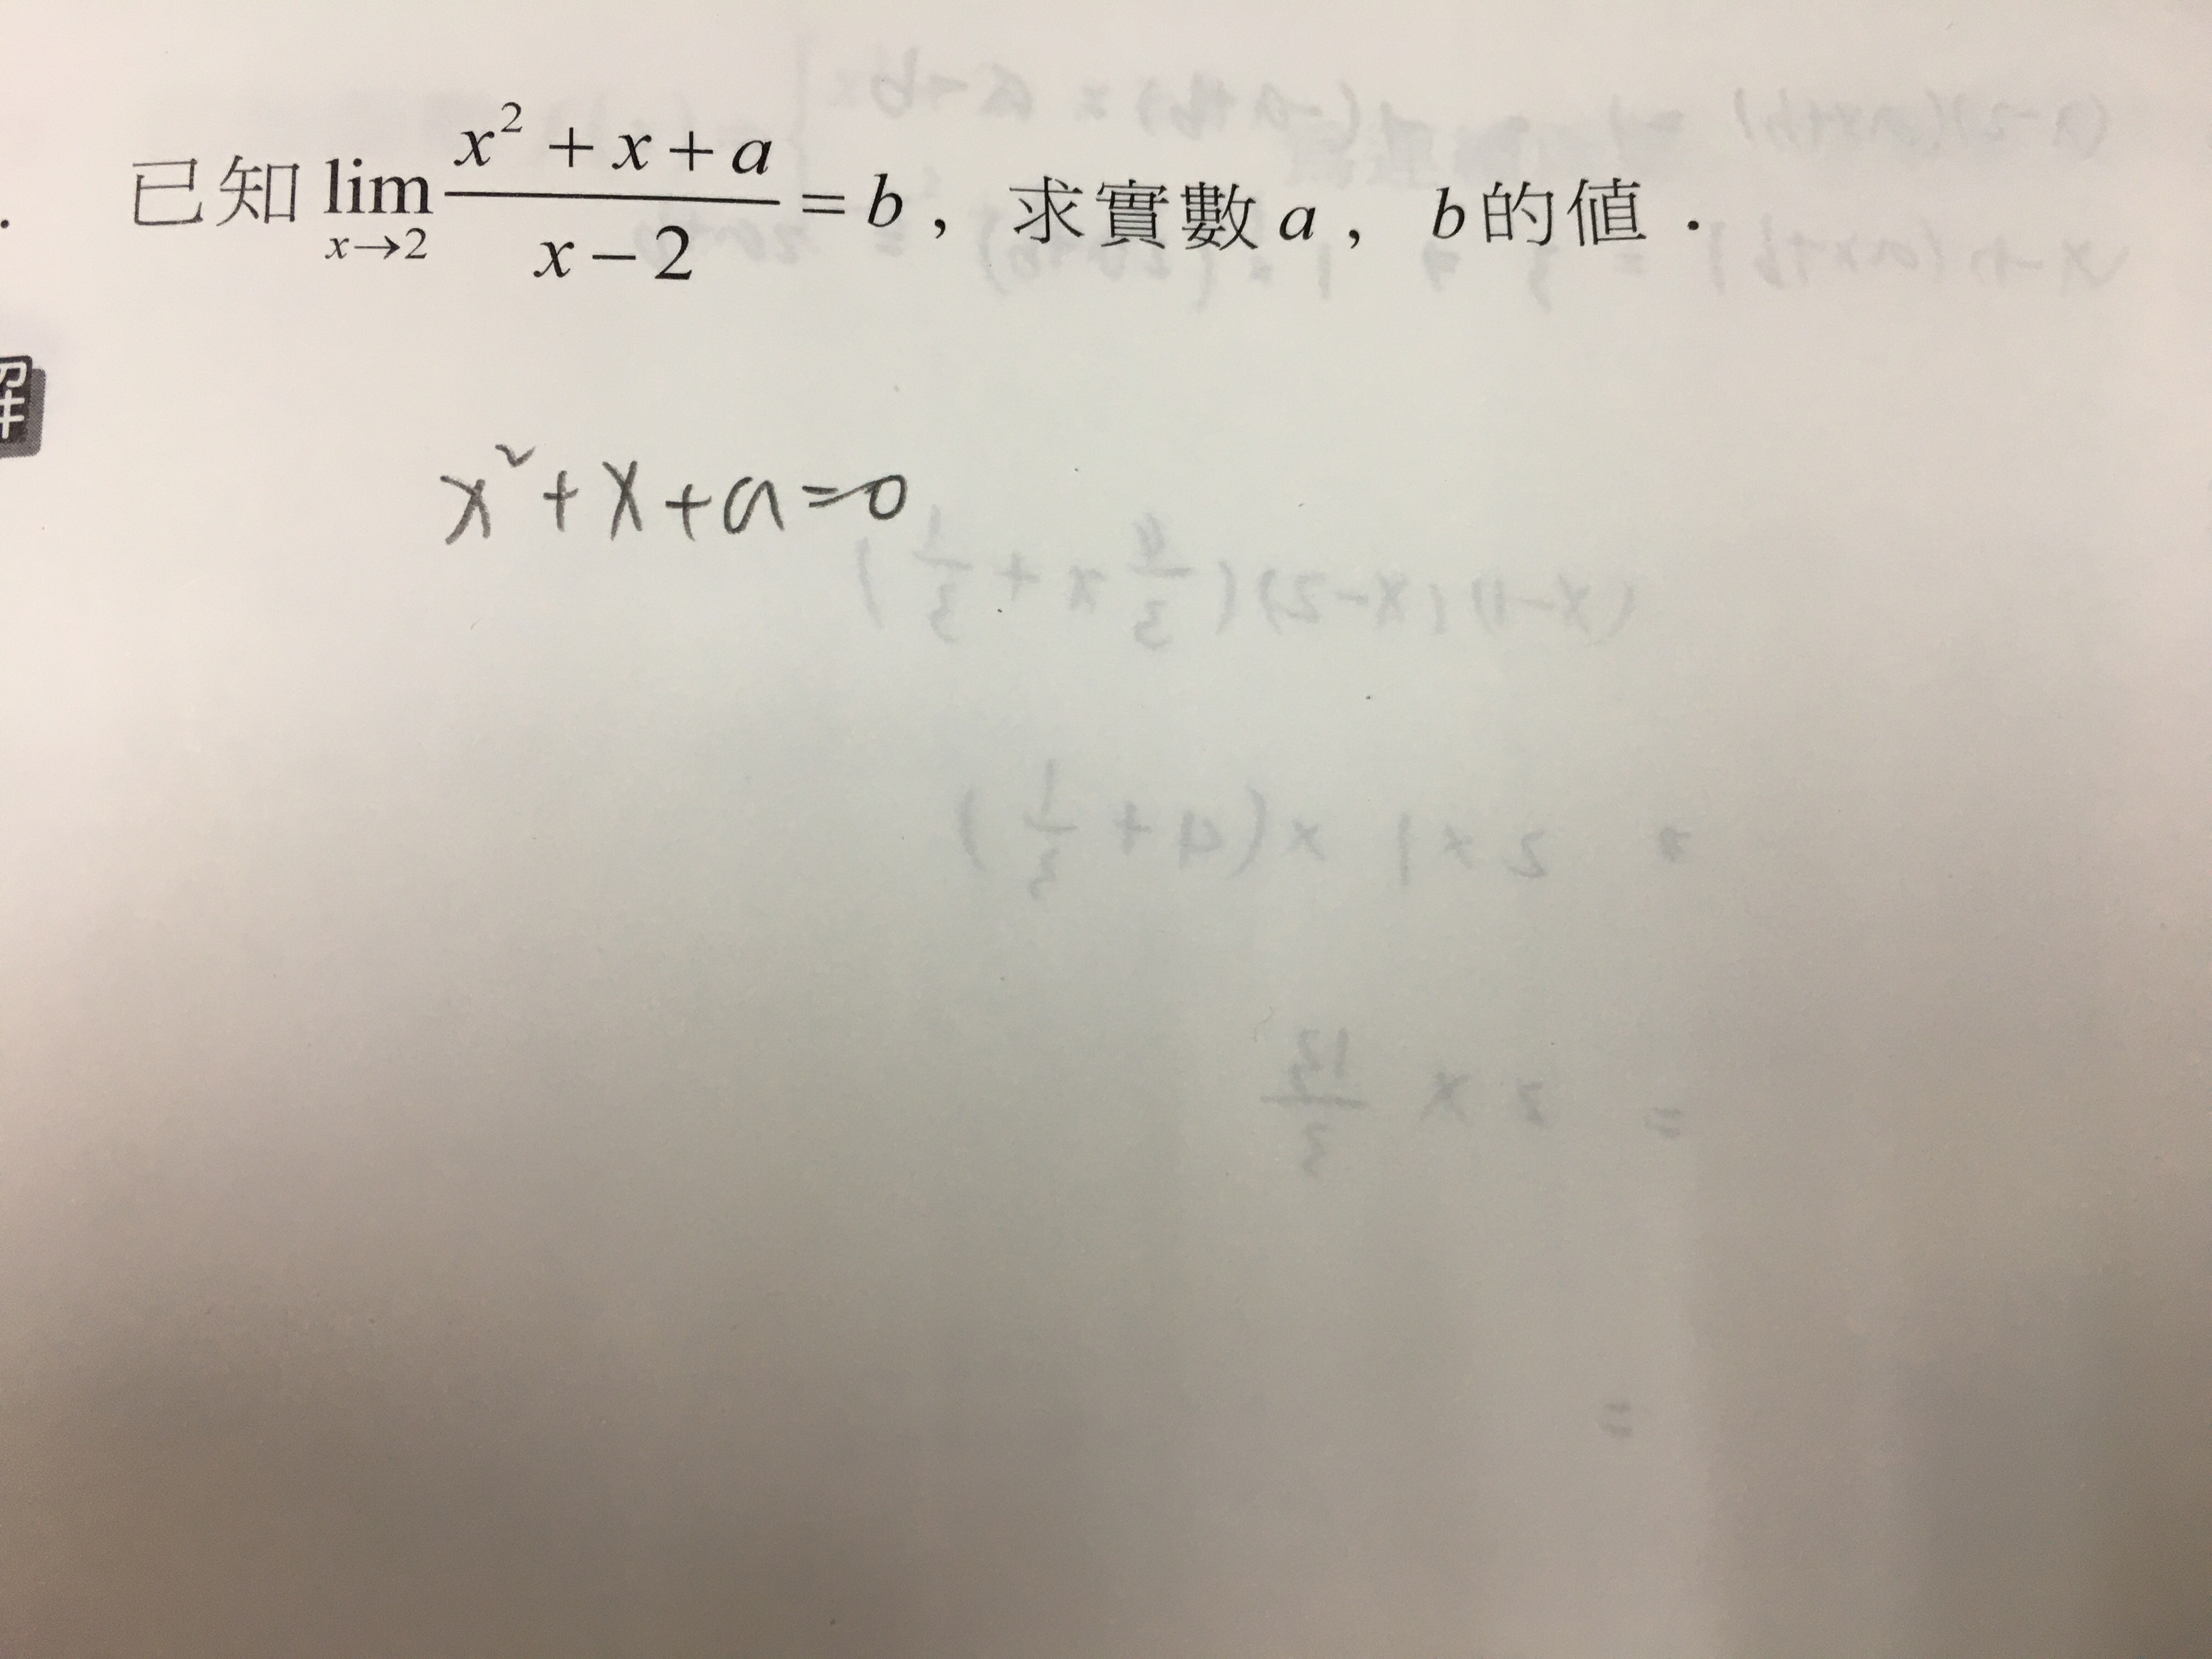 已知 lim x→2 (x² + x + a)/(x − 2) = b，求實數 a，b 的值．
解
x² + x + a = 0